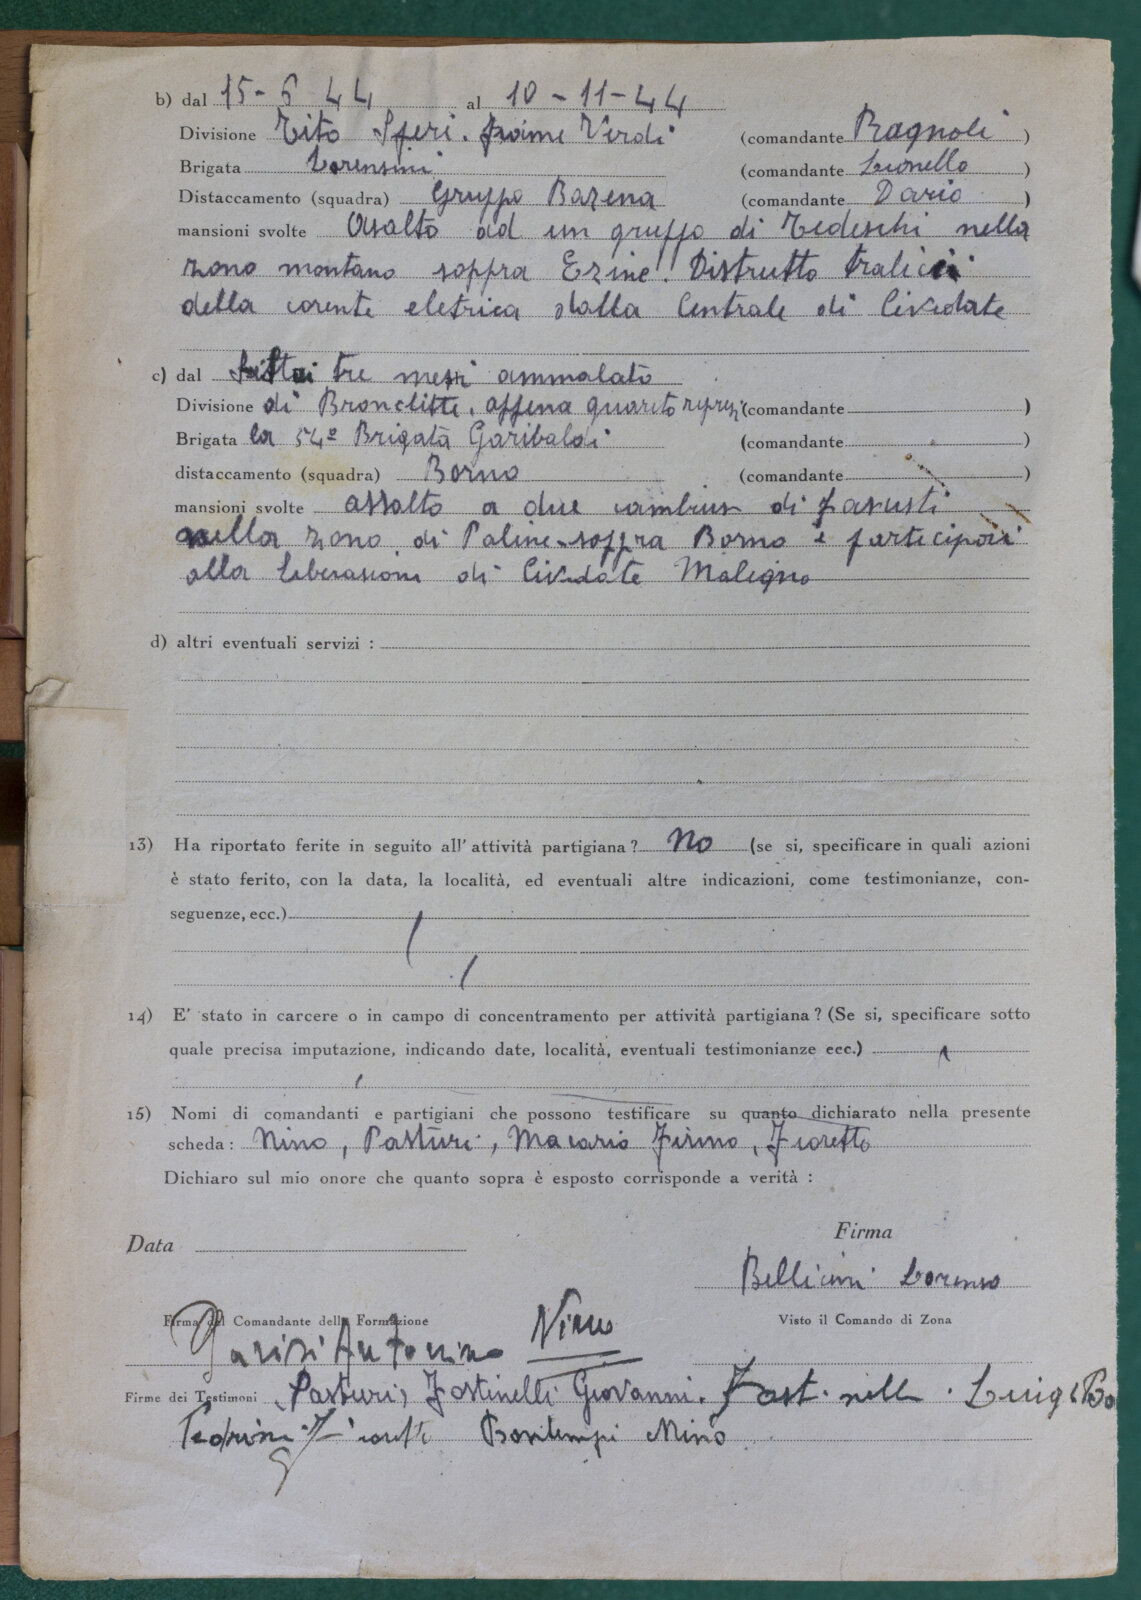 b) dal 15-6 44 al 10-11-44
Divisione Tito Speri. Fiame Verdi (comandante Ragnoli )
Brigata Lorensini (comandante Lionello )
Distaccamento (squadra) Gruppo Bazena (comandante Dario )
mansioni svolte Asalto ad un gruppo di Tedeschi nella
zona montana soppra Ezine. Distrutto tralicci
della corente eletrica dalla Centrale di Cividate
c) dal tre mesi ammalato
Divisione di Bronchite. appena guarito (comandante )
Brigata la 54ª Brigata Garibaldi (comandante )
distaccamento (squadra) Borno (comandante )
mansioni svolte assalto a due di Fasisti
nella zona di Paline soppra Borno e participai
alla liberasione di Cividate Malegno
d) altri eventuali servizi :
13) Ha riportato ferite in seguito all' attività partigiana ? No (se si, specificare in quali azioni
è stato ferito, con la data, la località, ed eventuali altre indicazioni, come testimonianze, con-
seguenze, ecc.)
14) E' stato in carcere o in campo di concentramento per attività partigiana ? (Se si, specificare sotto
quale precisa imputazione, indicando date, località, eventuali testimonianze ecc.)
15) Nomi di comandanti e partigiani che possono testificare su quanto dichiarato nella presente
scheda : Nino, Pasturi, Macario Firmo, Fioretto
Dichiaro sul mio onore che quanto sopra è esposto corrisponde a verità :
Data
Firma
Bellicini Lorenso
Firma del Comandante della Formazione
Visto il Comando di Zona
Parisi Antonino Nino
Firme dei Testimoni Pasturi, Fostinelli Giovanni. Luigi
Bontempi Nino